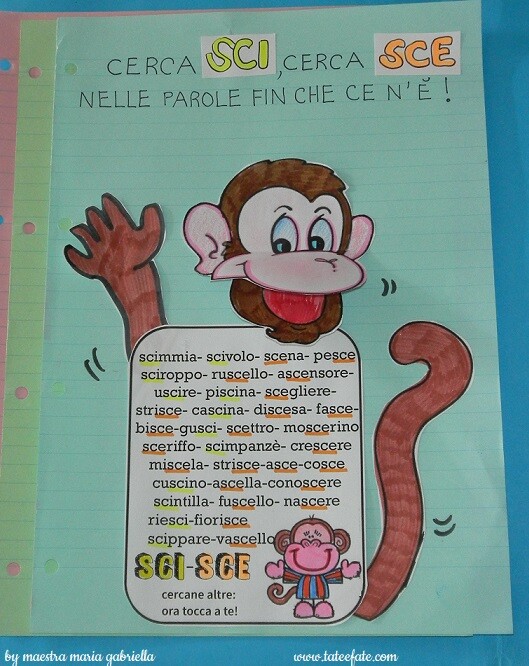 CERCA SCI, CERCA SCE
NELLE PAROLE FIN CHE CE N'È!
scimmia- scivolo- scena- pesce
sciroppo- ruscello- ascensore-
uscire- piscina- scegliere-
strisce- cascina- discesa- fasce-
bisce-gusci- scettro- moscerino
sceriffo- scimpanzè- crescere
miscela- strisce-asce-cosce
cuscino-ascella-conoscere
scintilla- fuscello- nascere
riesci-fiorisce
scippare-vascello
SCI-SCE
cercane altre:
ora tocca a te!
by maestra maria gabriella
www.tateefate.com